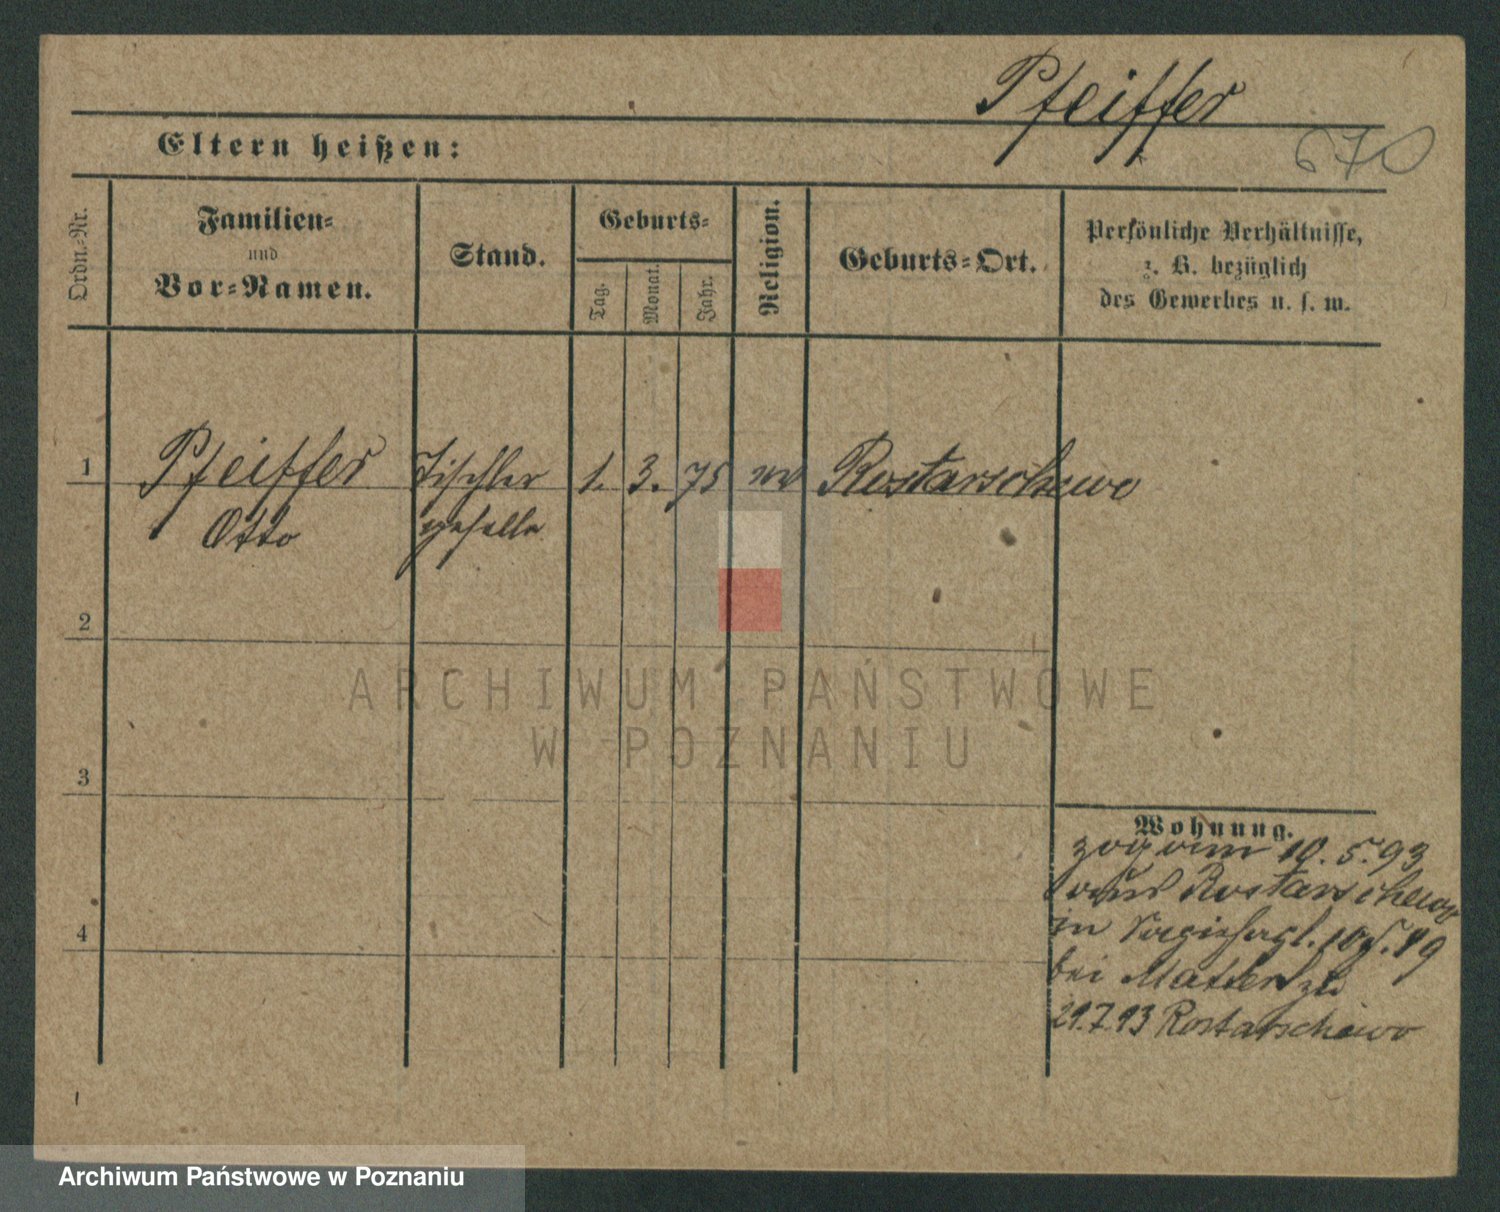 Pfeiffer
670
Eltern heißen:
Ordn.-Nr.
Familien-
und
Vor-Namen.
Stand.
Geburts-
Tag.
Monat.
Jahr.
Religion.
Geburts-Ort.
Persönliche Verhältnisse,
z. B. bezüglich
des Gewerbes u. s. w.
1
Pfeiffer Tischler 1. 3. 75 ev Rostarschewo
Otto geselle
2
ARCHIWUM PAŃSTWOWE
W POZNANIU
3
Wohnung.
zog am 10. 5. 93
aus Rostarschewo
in
bei
29.7.93 Rostarschewo
4
Archiwum Państwowe w Poznaniu